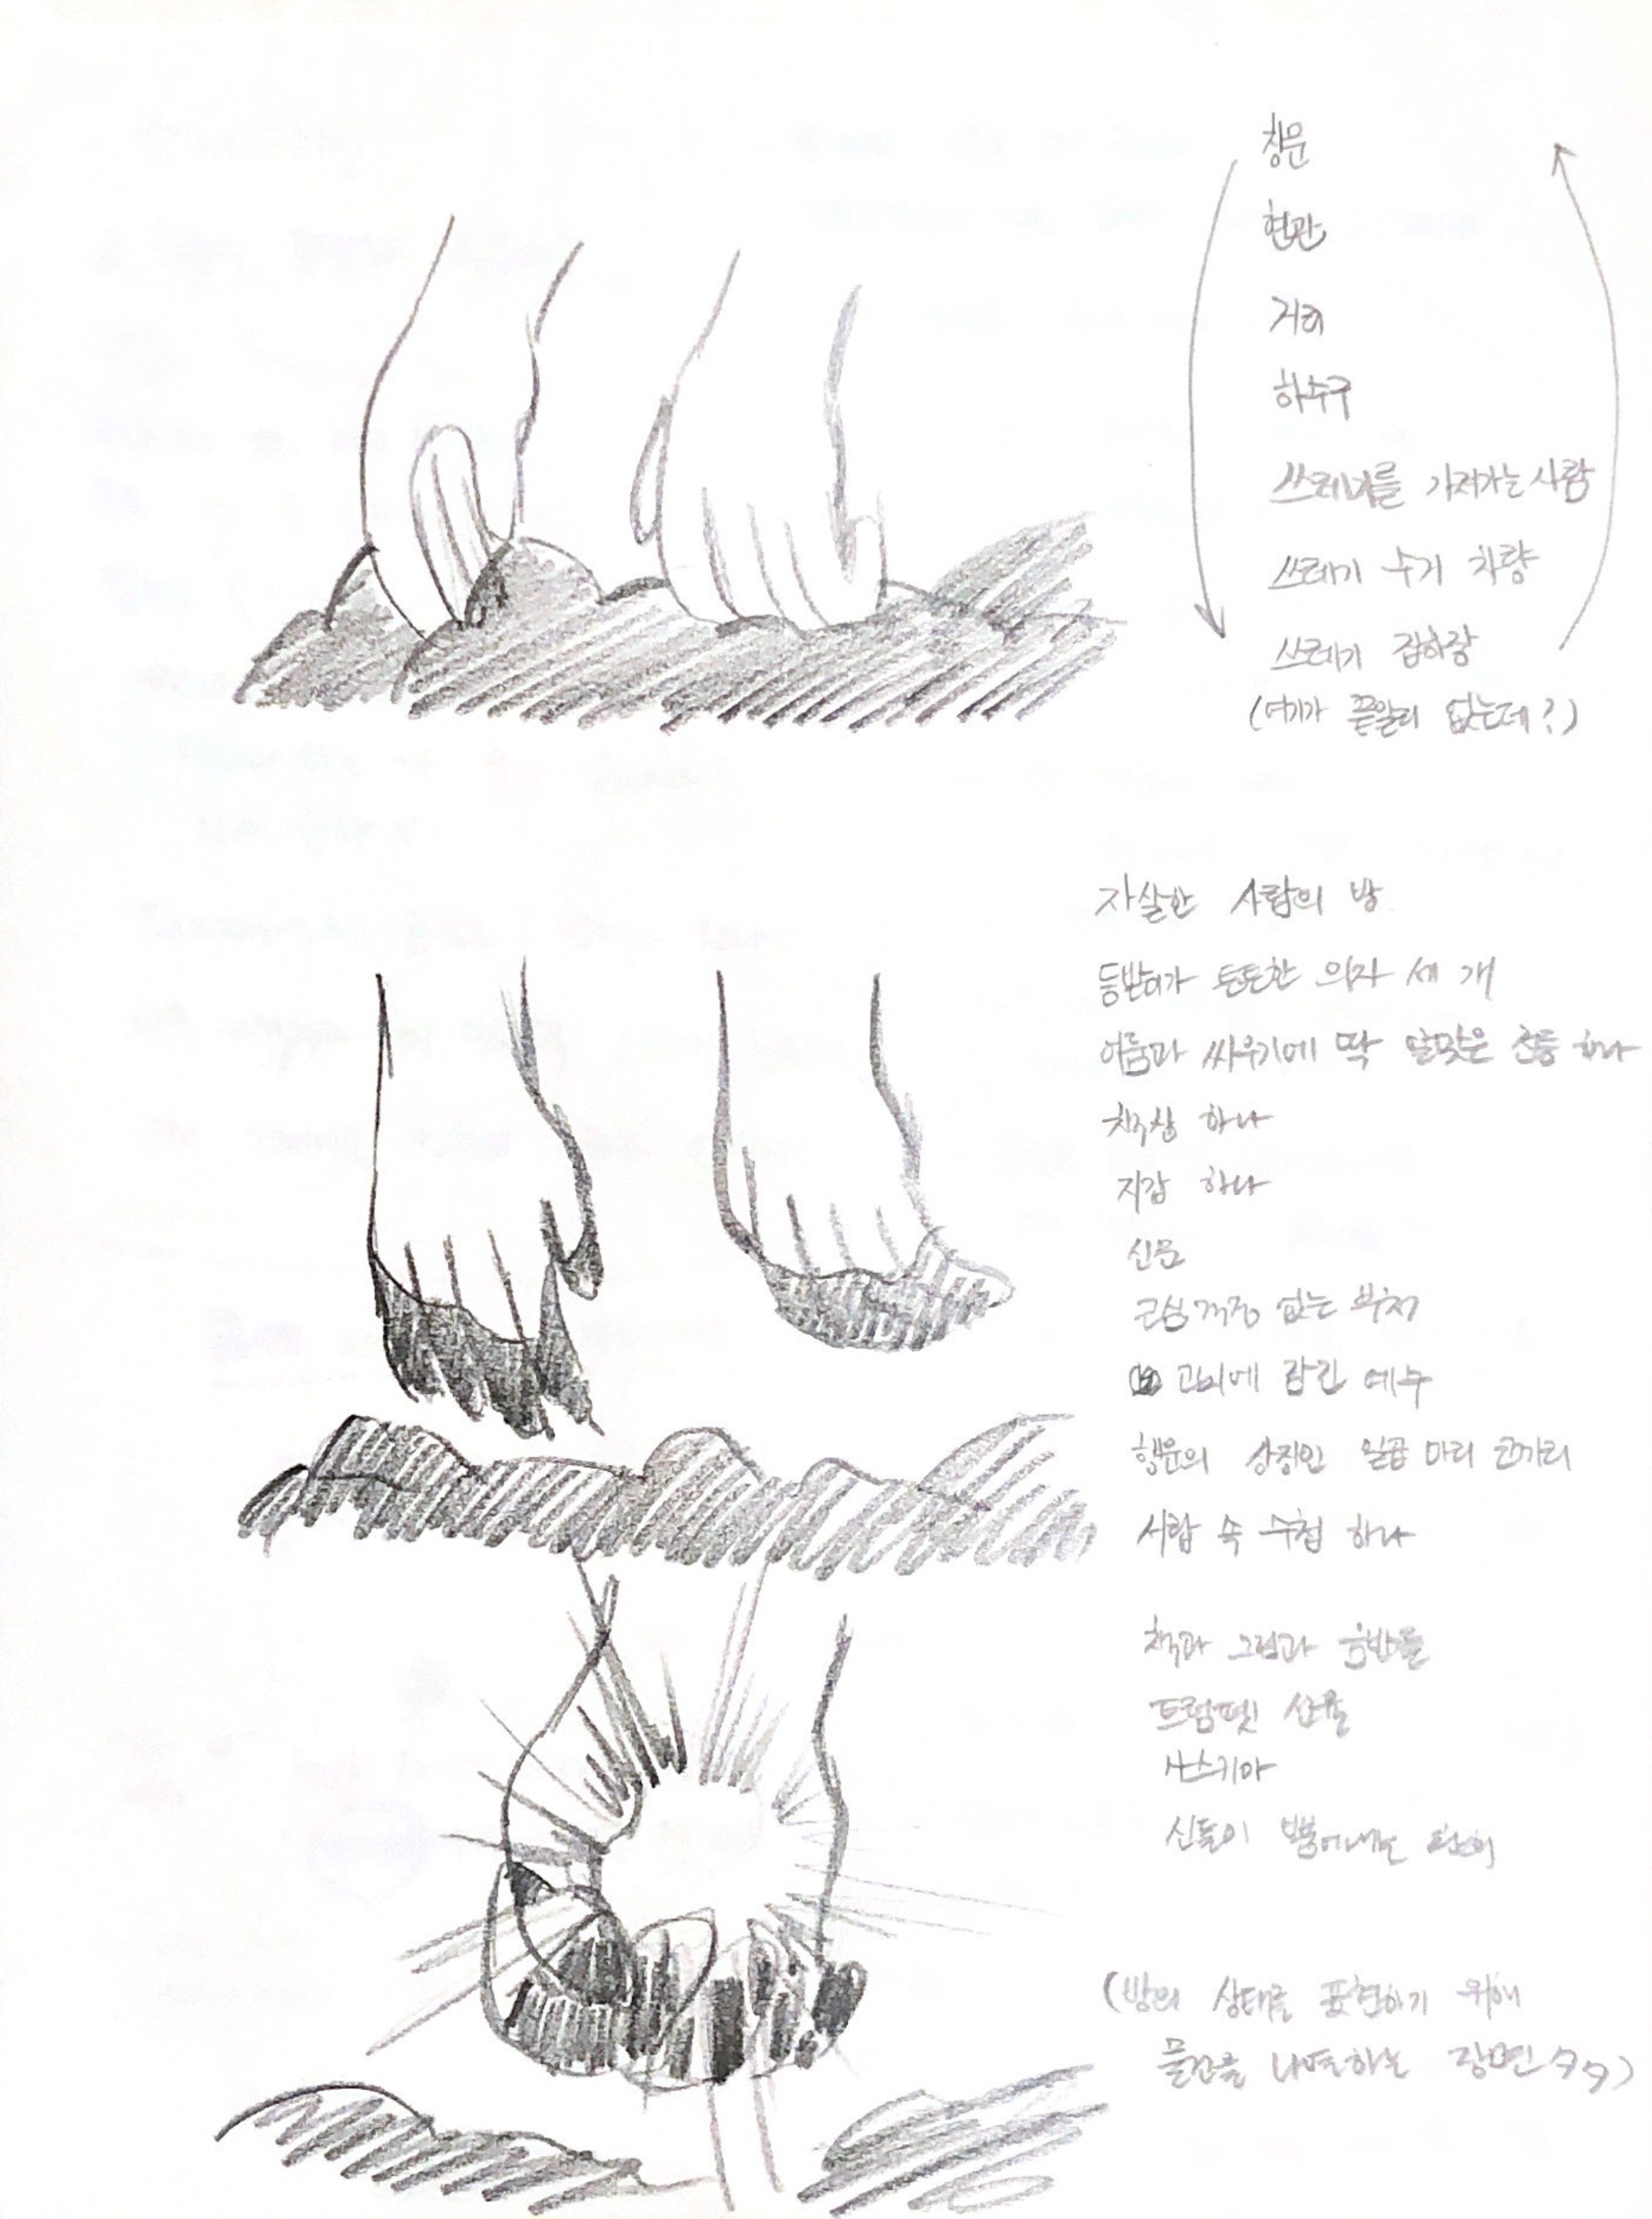 창문
현관
거리
하수구
쓰레기를 가져가는 사람
쓰레기 수거 차량
쓰레기 집하장
(여기가 끝일리 없는데?)
자살한 사람의 방
등받이가 튼튼한 의자 세 개
어둠과 싸우기에 딱 알맞은 전등 하나
책상 하나
지갑 하나
신문
근심걱정 없는 부처
고뇌에 잠긴 예수
행운의 상징인 일곱 마리 코끼리
서랍 속 수첩 하나
책과 그림과 음반들
트럼펫 선율
사스키아
신들이 뿜어내는
(방의 상태를 표현하기 위해
물건을 나열하는 장면ㅋㅋ)